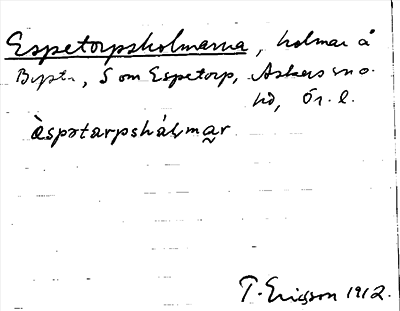 Espetorpsholmarna, holmar å
S om Espetorp, Askers sn o.
hd, Ör. l.
àspətarpshál̥ma̰r
T. Ericsson 1912.